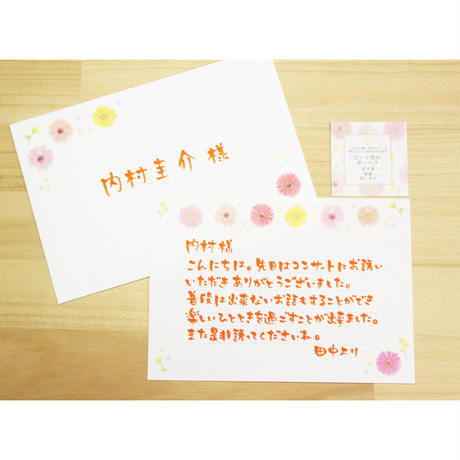 内村圭介 様
ピンク色の
ガーベラ
内村様
こんにちは。先日はコンサートにお誘い
いただきありがとうございました。
普段は出来ないお話もすることができ
楽しいひとときを過ごすことが出来ました。
また是非誘ってくださいね。
田中より